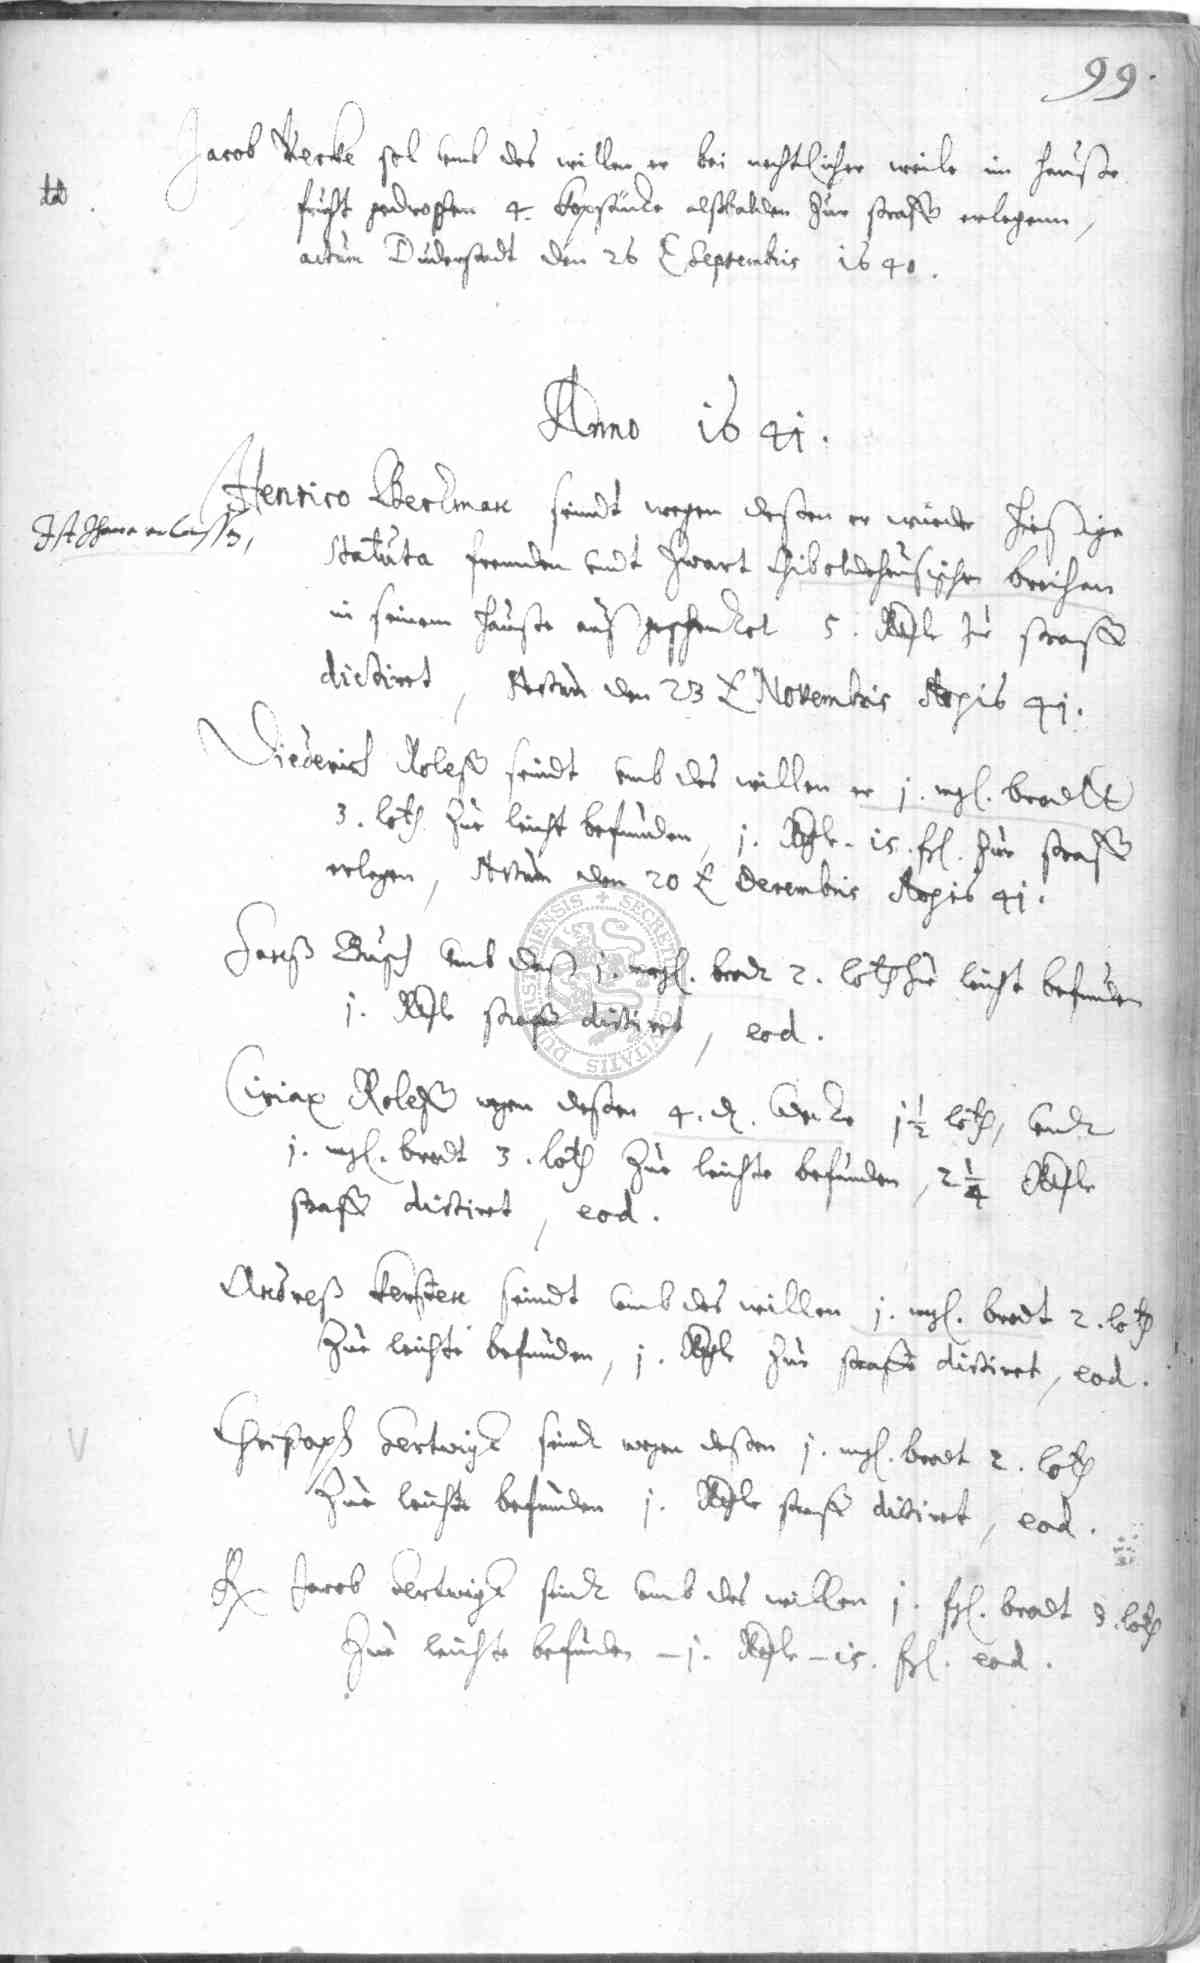 99.
Jacob Becke sol umb des willen er bei nachtlicher weile im hauße
dd.
frucht gedroschen 4. Kopstücke alßbalden zur straff erlegenn,
actum Duderstadt den 26 Septembris 1640.
Anno 1641.
Henrico Berckman seindt wegen deßen er wieder hiesige
Ist Ihme erlassen,
Statuta frembden undt zwart Giboldehusischen breihan
in seinem hauße außgeschencket 5. Rthlr zur straff
dictiret, Actum den 23 Novembris Anni 41.
Diederich Roleff seindt umb des willen er j. mgl. brodtt
3. loth zur leicht befunden, j. Rthlr. 15. ßl. zur straff
erlegen, Actum den 20 Decembris Anni 41.
Hanß Busch umb daß j. mgl. brodt 2. loth zu leicht befunden
j. Rthlr straff dictiret, eod.
Ciriax Roleff wegen deßen 4. d. wecke j½ loth, undt
j. mgl. brodt 3. loth zur leichte befunden, 2¼ Rthlr
straff dictiret, eod.
Andreß Kersten seindt umb des willen j. mgl. brodt 2. loth
zur leichte befunden, j. Rthlr zur straff dictiret, eod.
Christoph Hertwigk seindt wegen deßen j. mgl. brodt 2. loth
zur leichte befunden j. Rthlr straff dictiret, eod.
Jacob Hertwigk seindt umb des willen j. ßl. brodt 3. loth
zur leichte befunden – j. Rthlr – 15. ßl. eod.